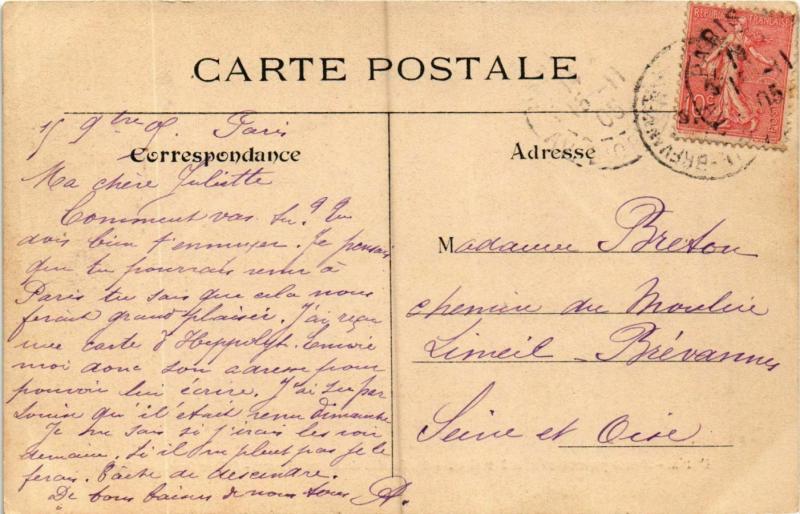 CARTE POSTALE
Paris
Correspondance
Ma chère Juliette
Comment vas tu? Tu
dois bien t'ennuyer. Je pensais
que tu pourrais venir à
Paris tu sais que cela nous
ferait grand plaisir. J'ai reçu
une carte d'Hippolyte. Envoie
moi donc son adresse pour
pouvoir lui écrire. J'ai su par
Louise qu'il était venu Dimanche
Je ne sais si j'irais les voir
demain. Si il ne pleut pas je le
ferais. Tâche de descendre.
De bons baisers de nous tous A.
Adresse
Madame Breton
chemin du Moulin
Limeil-Brévannes
Seine et Oise
REPUBLIQUE FRANÇAISE
10c
PARIS